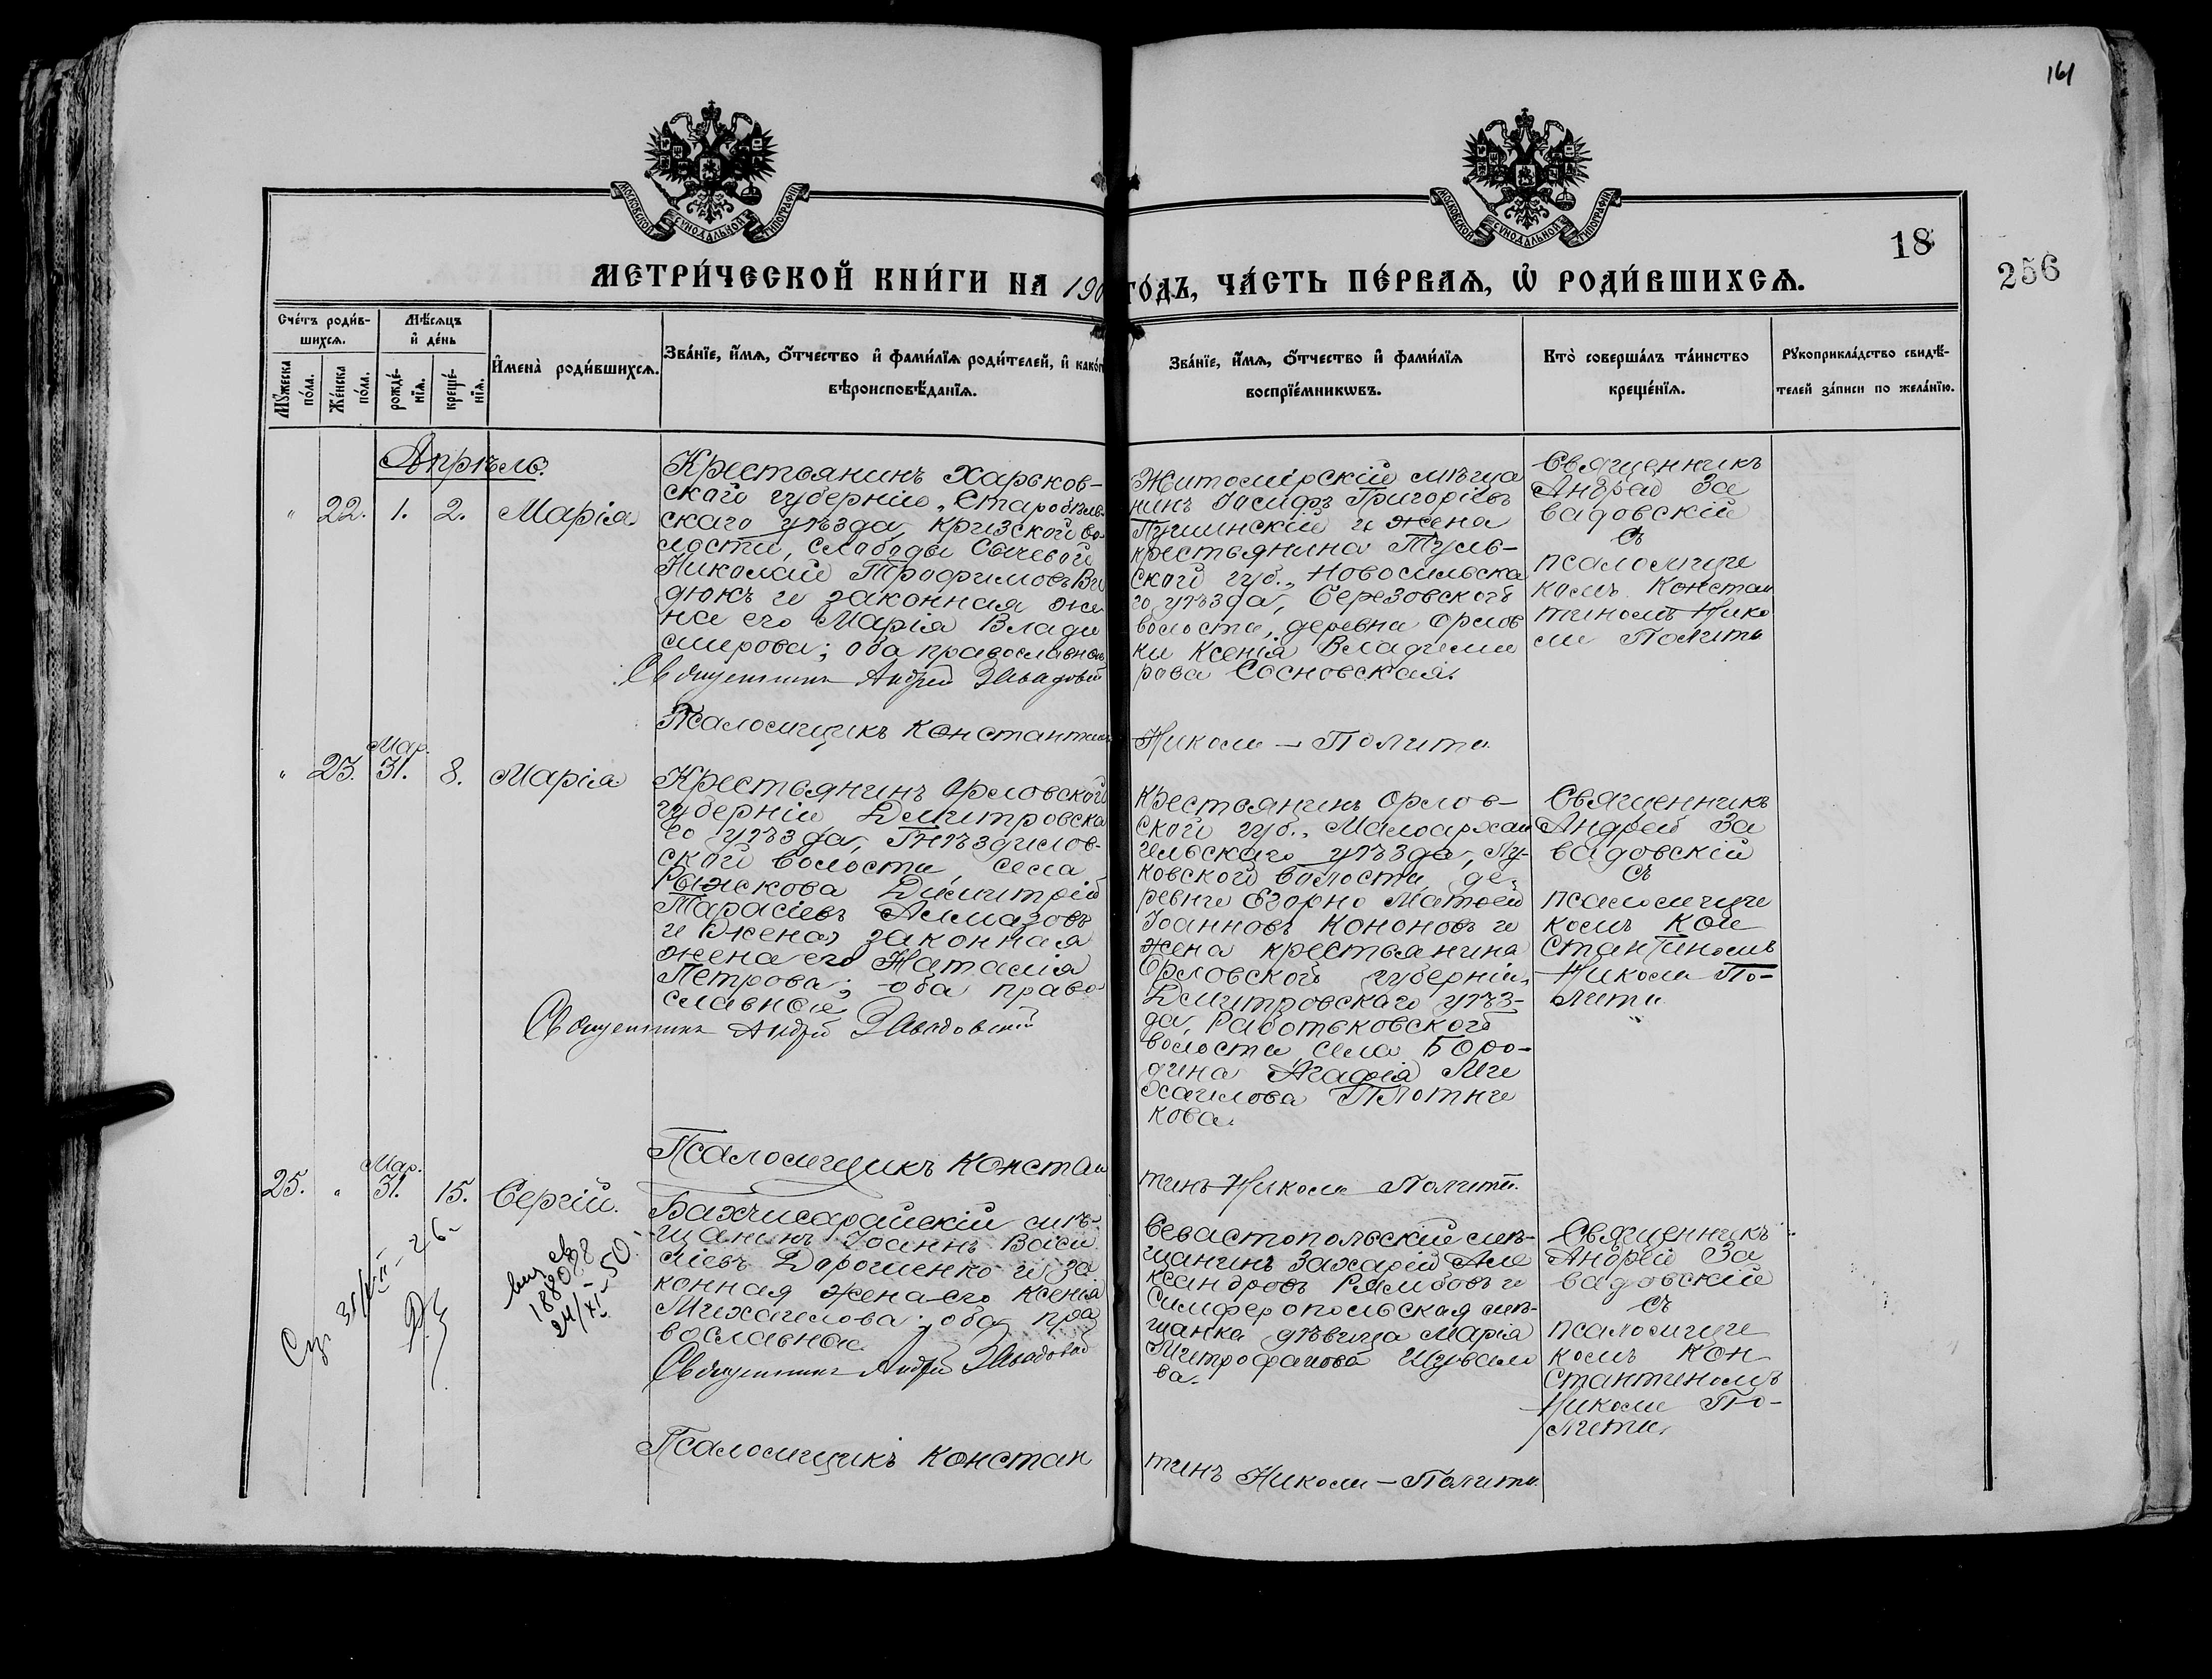 161
МОСКОВСКОЙ СѴНОДАЛЬНОЙ ТИПОГРАФІИ
МОСКОВСКОЙ СѴНОДАЛЬНОЙ ТИПОГРАФІИ
18
256
МЕТРИ́ЧЕСКОЙ КНИ́ГИ НА 190
ГО́ДЪ, ЧА́СТЬ ПЕ́РВАѦ, Ѡ҆ РОДИ́ВШИХСѦ.
Сче́тъ роди́в-
шихсѧ.
Мꙋ́жеска
по́ла.
Же́нска
по́ла.
Мѣ́сѧцъ
и҆ де́нь
рожде́-
нїѧ.
креще́-
нїѧ.
И҆мена̀ роди́вшихсѧ.
Зва́нїе, и҆́мѧ, ѻ҆́тчество и҆ фами́лїѧ роди́телей, и҆ како́
вѣроисповѣ́данїѧ.
Зва́нїе, и҆́мѧ, ѻ҆́тчество и҆ фами́лїѧ
воспрїе́мникѡвъ.
Кто̀ соверша́лъ та́инство
креще́нїѧ.
Рꙋкоприкла́дство свидѣ́-
телей за́писи по жела́нїю.
Апрѣль.
" 22. 1. 2. Марія.
Крестьянинъ Харьков-
ской губерніи, Старобѣль-
скаго уѣзда, кризской во-
лости, слободы Сычевой
Николай Трофимовъ Ви
дюкъ и законная же
на его Марія Влади
мирова; оба православные
Священникъ Андрей Завадовскій
Псаломщикъ Константинъ
Житомірскій мѣща
нинъ Іосифъ Григоріевъ
Пушинскій и жена
крестьянина Туль-
ской губ., Новосильска
го уѣзда, Березовской
волости, деревни Орлов
ки Ксенія Владими
рова Сосновская.
Николи — Полити.
Священникъ
Андрей За
вадовскій
съ
псаломщи
комъ Констан
тиномъ Нико
ли Полити
Мар.
" 23. 31. 8. Марія
Крестьянинъ Орловской
губерніи Дмитровска
го уѣзда, Гнѣздилов-
ской волости, села
Рыжкова Димитрій
Тарасіевъ Алмазовъ
и законная
жена его Наталія
Петрова; оба право
славные
Священникъ Андрей Завадовскій
Псаломщикъ Констан
Крестьянинъ Орлов-
ской губ., Малоархан
гельскаго уѣзда, Лу-
ковской волости, де-
ревни Егорно Матѳей
Іоанновъ Кононовъ и
жена крестьянина
Орловской губерніи,
Дмитровскаго уѣз-
да, Работьковской
волости, села Боро-
дина Агафія Ми
хаилова Плотни
кова.
тинъ Николи Полити.
Священникъ
Андрей За
вадовскій
съ
псаломщи
комъ Кон
стантиномъ
Николи По-
лити
Мар.
25. " 31. 15. Сергій.
31/XII - 26
18808
24/XI - 50
Бахчисарайскій мѣ-
щанинъ Іоаннъ Васи
ліевъ Дорошенко и за
конная жена его Ксенія
Михаилова; оба пра
вославные.
Священникъ Андрей Завадовскій
Псаломщикъ Констан
Севастопольскій мѣ-
щанинъ Захарій Але
ксандровъ Рямбовъ и
Симферопольская мѣ-
щанка дѣвица Марія
Митрофанова Шувало
ва.
тинъ Николи — Полити.
Священникъ
Андрей За
вадовскій
съ
псаломщи
комъ Кон
стантиномъ
Николи По-
лити.